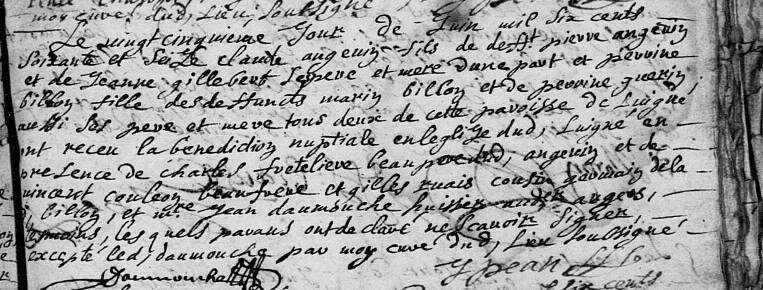 mon curé dud, Lieu soussigné
Le vingt cinquieme Jour de Juin mil six cents
soixante et seize claude angevin fils de defft pierre angevin
et de Jeanne gillebert sepere et mere dune part et perrine
billon fille des deffunds marin billon et de perrine guerin
aussi ses pere et mere tous deux de cette paroisse de Luigné,
ont receu la benediction nuptiale en leglize dud, Luigné en
presence de charles freteliere beaupere dud, angevin et de
vincent couleon beaufrere et gilles ruais cousin germain de la
d, billon, et mre Jean daumouche huissier angers,
tesmoins, les quels parans ont declaré ne scavoir signer,
excepté led, daumouche par moy curé dud, Lieu soussigné
Daumouche
Jpean
six cents